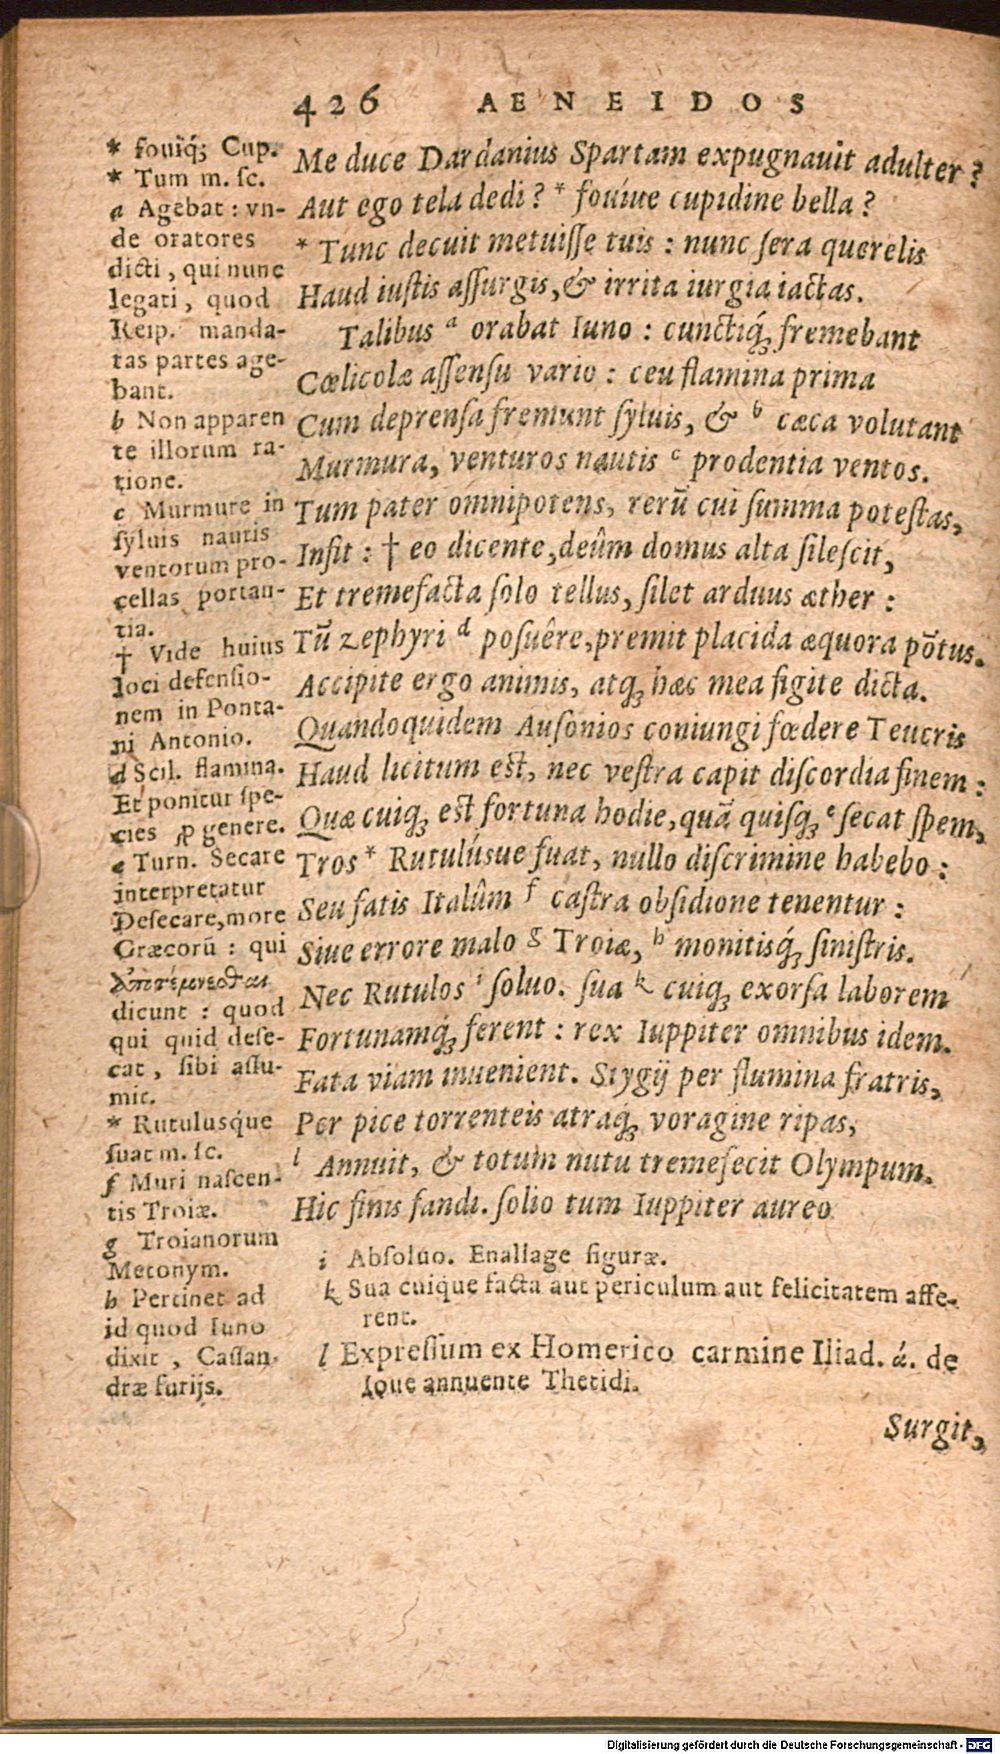 426 AENEIDOS
Me duce Dardanius Spartam expugnauit adulter?
Aut ego tela dedi? * fouíue cupidine bella?
* Tunc decuit metuiſſe tuis : nunc ſera querelis
Haud iuſtis aſſurgis, & irrita iurgia iactas.
Talibus a orabat Iuno : cunctiq́ꝫ fremebant
Cœlicolæ aſſenſu vario : ceu flamina prima
Cum deprenſa fremunt ſyluis, & b cæca volutant
Murmura, venturos nautis c prodentia ventos.
Tum pater omnipotens, rerũ cui ſumma poteſtas,
Infit : † eo dicente, deûm domus alta ſileſcit,
Et tremefacta ſolo tellus, ſilet arduus æther :
Tũ zephyri d poſuêre, premit placida æquora põtus.
Accipite ergo animis, atqꝫ hæc mea figite dicta.
Quandoquidem Auſonios coniungi fœdere Teucris
Haud licitum eſt, nec veſtra capit diſcordia finem :
Quæ cuiqꝫ eſt fortuna hodie, quã quiſqꝫ e ſecat ſpem,
Tros * Rutulúsue fuat, nullo diſcrimine habebo :
Seu fatis Italûm f caſtra obſidione tenentur :
Siue errore malo g Troiæ, h monitisq́ꝫ ſiniſtris.
Nec Rutulos i ſoluo. ſua k cuiqꝫ exorſa laborem
Fortunamq́ꝫ ferent : rex Iuppiter omnibus idem.
Fata viam inuenient. Stygij per flumina fratris,
Per pice torrenteis atraqꝫ voragine ripas,
l Annuit, & totum nutu tremefecit Olympum.
Hic finis fandi. ſolio tum Iuppiter aureo
* fouiq́ꝫ Cup.
* Tum m. ſc.
a Agebat : vn-
de oratores
dicti, qui nunc
legati, quod
Reip. manda-
tas partes age-
bant.
b Non apparen
te illorum ra-
tione.
c Murmure in
ſyluis nautis
ventorum pro-
cellas portan-
tia.
† Vide huius
loci defenſio-
nem in Ponta-
ni Antonio.
d Scil. flamina.
Et ponitur ſpe-
cies ꝓ genere.
e Turn. Secare
interpretatur
Deſecare, more
Græcorũ : qui
ἀποτέμνεσθαι
dicunt : quod
qui quid deſe-
cat, ſibi aſſu-
mit.
* Rutulusq́ue
fuat m. ſc.
f Muri naſcen-
tis Troiæ.
g Troianorum
Metonym.
h Pertinet ad
id quod Iuno
dixit, Caſſan-
dræ furijs.
i Abſoluo. Enallage figuræ.
k Sua cuique facta aut periculum aut felicitatem affe-
rent.
l Expreſſum ex Homerico carmine Iliad. ά. de
Ioue annuente Thetidi.
Surgit,
Digitalisierung gefördert durch die Deutsche Forschungsgemeinschaft - DFG